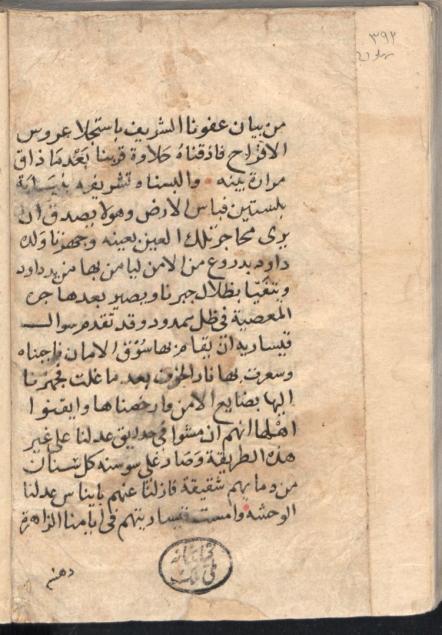 ٣٩٢
من بيان عفونا الشريف باستجلا عروس
الافراح فاذقناه حلاوة قربنا بعد ما ذاق
مرارة بينه والبسناه تشريفه
بلستين قباس الارض وهو لا يصدق ان
يرى محاجر تلك العين بعينه وجهزنا ولده
داود بدروع من الامن ليامن بها من يرد اود
ويتفيا بظلال جبرنا ويصير بعدها جن
المعصية في ظل ممدود وقد تقدم سوال
قيسارية ان يقام بها سوق الامان فاجبناه
وسعرت بها نار الخوف بعد ما غلت فجهزنا
اليها بضايع الامن وارخصناها وايقنوا
اهلها انهم ان مشوا في حدايق عدلنا على غير
هذه الطريقة وصار على سوسنه كل سنان
من دمايهم شقيقة فازلنا عنهم بايناس عدلنا
الوحشة وامست قيساريتهم في ايامنا الزاهرة
كتابخانه
ملى ملك
دهشه